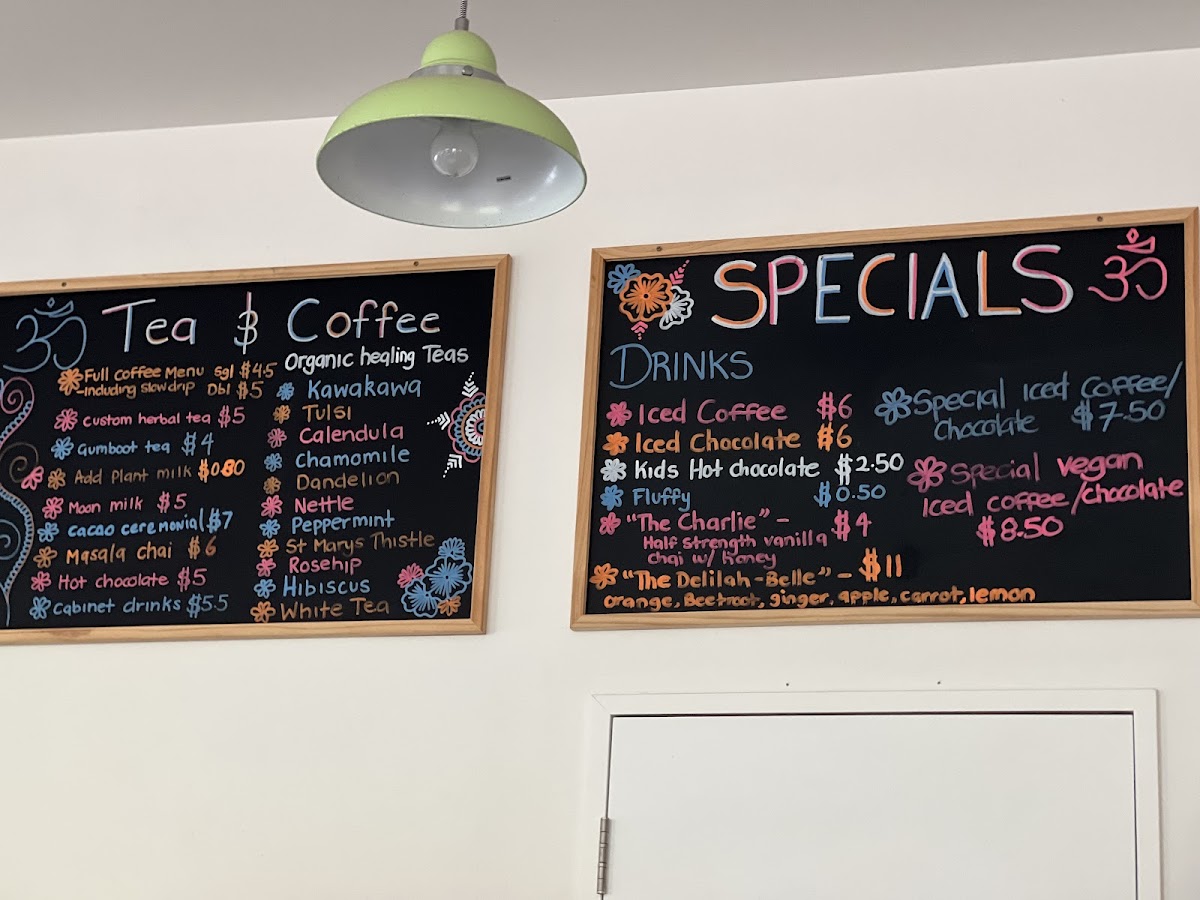 ॐ Tea & Coffee
Full coffee Menu sgl $4.5
-Including slowdrip Dbl $5
Custom herbal tea $5
Gumboot tea $4
Add Plant milk $0.80
Moon milk $5
cacao ceremonial $7
Masala chai $6
Hot chocolate $5
Cabinet drinks $5.5
Organic healing Teas
Kawakawa
Tulsi
Calendula
Chamomile
Dandelion
Nettle
Peppermint
St Marys Thistle
Rosehip
Hibiscus
White Tea
SPECIALS ॐ
DRINKS
Iced Coffee $6
Iced Chocolate $6
Kids Hot chocolate $2.50
Fluffy $0.50
"The Charlie" - $4
Half strength vanilla
chai w/ honey
"The Delilah-Belle" - $11
orange, Beetroot, ginger, apple, carrot, lemon
Special Iced Coffee/
Chocolate $7.50
Special vegan
Iced coffee/chocolate
$8.50